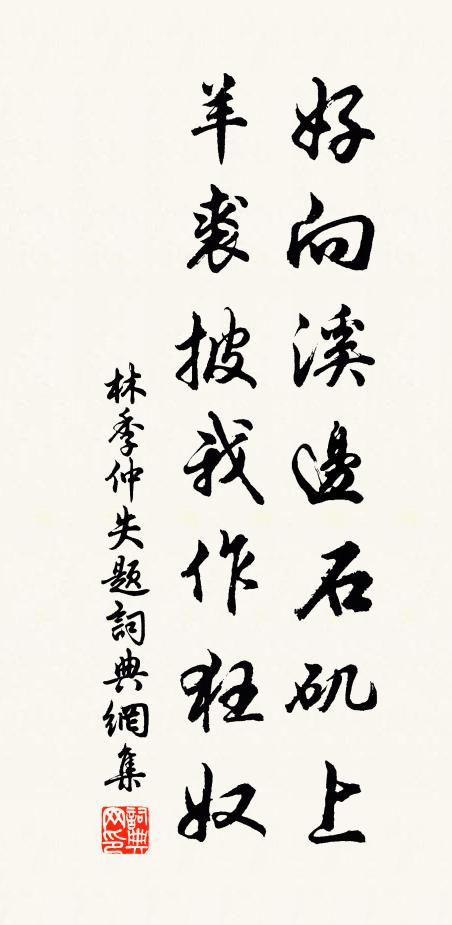 好向溪邊石矶上
羊裘披我作狂奴
林季仲失題詞典網集
詞典网印